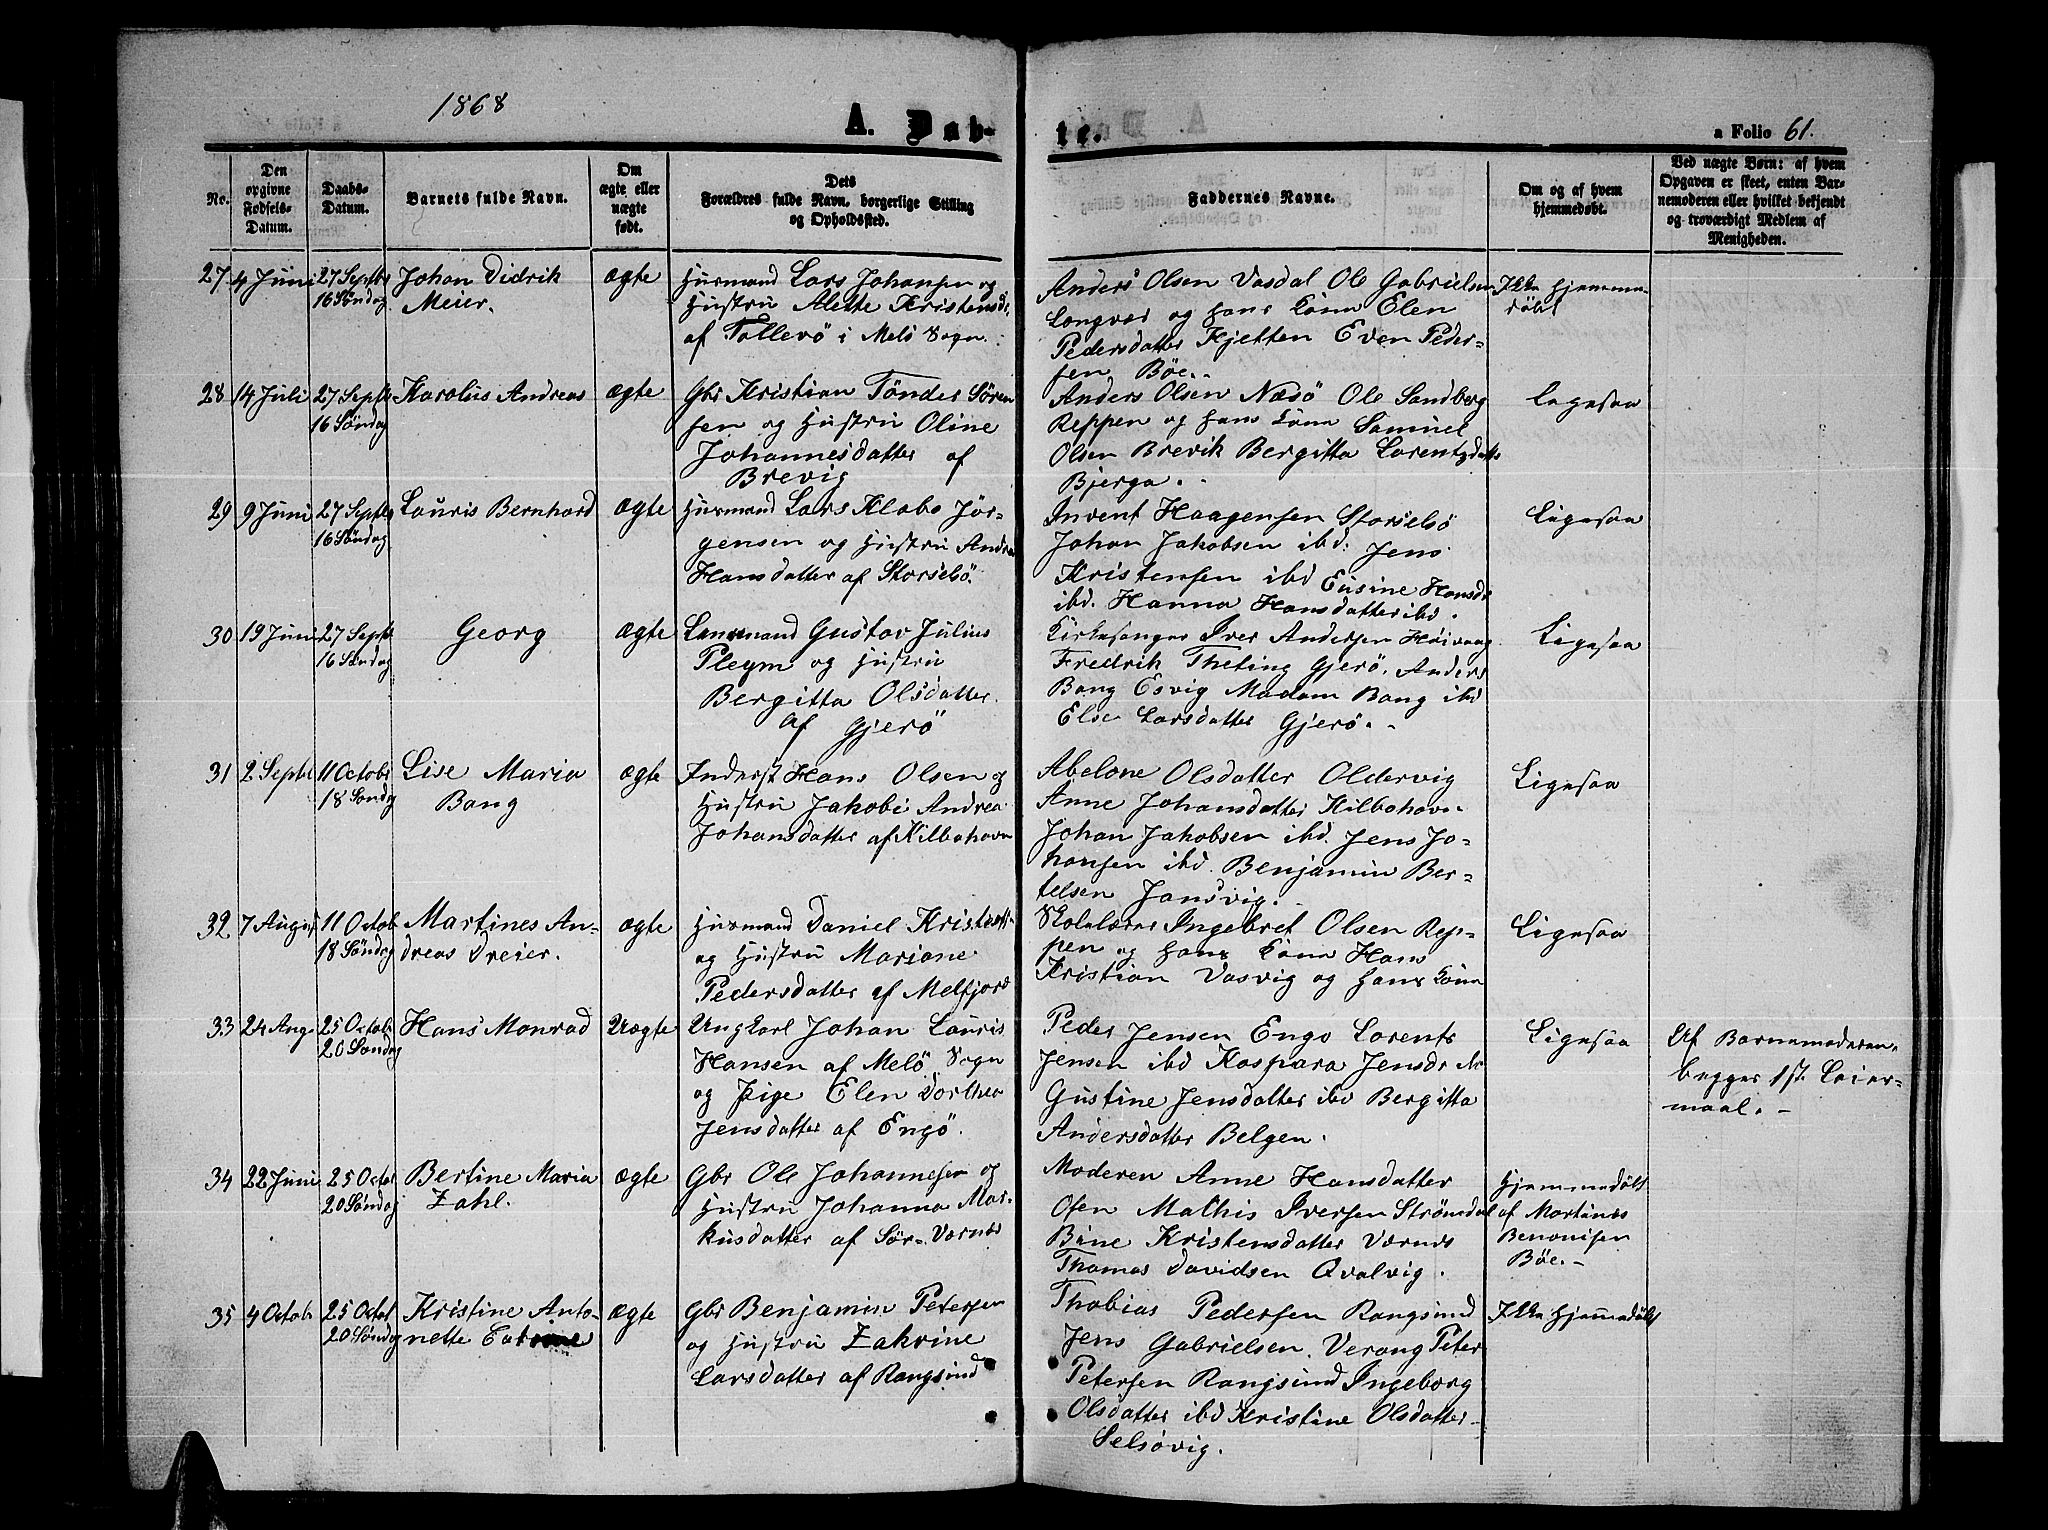 1868
A. Dab-
te.
a Folio 61.
No.
Den
opgivne
Fødsels-
Datum.
Daabs-
Datum.
Barnets fulde Navn.
Om
ægte eller
uægte
født.
Dets
Forældres fulde Navn, borgerlige Stilling
og Opholdssted.
Faddernes Navne.
Om og af hvem
hjemmedøbt.
Ved uægte Børn: af hvem
Opgaven er skeet, enten Bar-
nemoderen eller hvilket bekjendt
og troværdigt Medlem af
Menigheden.
27
4 Juni
27 Septbr
16 Søndag
Johan Didrik
Meier.
Ægte
Huusmand Lars Johansen og
Hustru Alette Kristensdr
af Tollevö i Melö Sogn.
Anders Olsen Vasdal Ole Gabrielsen
Langvad og hans Kona Elen
Pedersdatter Kjetten Even Peder-
sen Böe.
Ikke hjemme-
döbt
28
14 Juli
27 Septbr
16 Søndag
Karolus Andreas
Ægte
Gbr Kristian Tönder Sören
sen og Hustru Oline
Johannesdatter af
Brevig
Anders Olsen Næsö Ole Sandberg
Reppen og hans Kona Samuel
Olsen Brevik Bergitta Lorentsdatter
Bjerga.
Ligesaa
29
9 Juni
27 Septbr
16 Søndag
Lauris Bernhard
Ægte
Huusmand Lars Klabo Jör-
gensen og Hustru Andrea
Hansdatter af Storselsö.
Invent Haagensen Storselsö
Johan Jakobsen ibd. Jens
Kristensen ibd Eusine Hansdr
ibd. Hanna Hansdatter ibd.
Ligesaa
30
19 Juni
27 Septb
16 Søndag
Georg
Ægte
Lensmand Gustav Julius
Pleym og Hustru
Bergitta Olsdatter
af Gjerö
Kirkesanger Iver Andersen Höivaag
Fredrik Theting Gjerö. Anders
Bang Esvig Madam Bang ibd
Else Larsdatter Gjerö.
Ligesaa
31
2 Septb
11 Octobr
18 Sondg
Lise Maria
Bang
Ægte
Inderst Hans Olsen og
Hustru Jakobi Andrea
Johansdatter af Kilbohavn
Abelone Olsdatter Oldervig
Anne Johansdatter Kilbohavn
Johan Jakobsen ibd. Jens Jo-
hansen ibd. Benjamin Ber-
telsen Jansvig.
Ligesaa
32
7 August
11 Octob
18 Søndg
Martines An-
dreas Dreier.
Ægte
Huusmand Daniel Kristens
og Hustru Mariane
Pedersdatter af Melfjord
Skolelærer Ingebret Olsen Rep-
pen og hans Kona Hans
Kristian Vasvig og hans Kona
Ligesaa
33
24 Aug
25 Octob
20 Sondag
Hans Monrad
Uægte
Ungkarl Johan Lauris
Hansen af Melö Sogn
og Pige Elen Dorthea
Jensdatter af Engö.
Peder Jensen Engo Lorents
Jensen ibd Kaspara Jensdr
Gustine Jensdatter ibd Bergitta
Andersdatter Belgen.
Ligesaa
Af Barnemoderen
begges 1ste Leier-
maal.
34
22 Juni
25 Octor
20 Søndag
Bertine Maria
Zahl.
Ægte
Gbr Ole Johannesen og
Hustru Johanna Mar-
kusdatter af Sör-Værnes
Moderen Anne Hansdatter
Osen Mathis Iversen Strömdal
Bine Kristensdatter Værnes
Thomas Davidsen Qvalvig.
Hjemmedöbt
af Martines
Benonisen
Böe.
35
4 Octob
25 Octob
20 Søndag
Kristine Anto-
nette
Ægte
Gbr Benjamin Petersen
og Hustru Zakrine
Larsdatter af Rangsund
Thobias Pedersen Rangsund
Jens Gabrielsen. Verang Peter
Petersen Rangsund Ingeborg
Olsdatter ibd Kristine Olsdatter
Selsövig.
Ikke hjemmedöbt